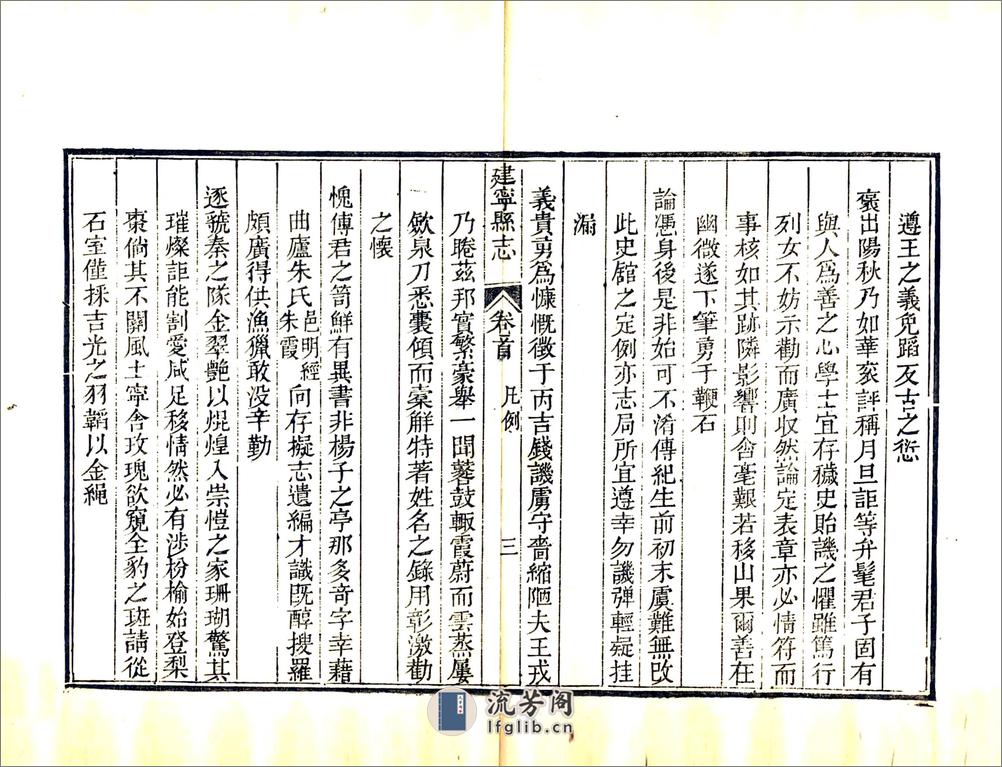 遵王之義免蹈反古之愆
褒出陽秋乃如華衮評稱月旦詎等弁髦君子固有
與人爲善之心學士宜存穢史貽譏之懼雖篤行
列女不妨示勸而廣收然論定表章亦必情符而
事核如其跡隣影響則含毫艱若移山果爾善在
幽微遂下筆勇于鞭石
論憑身後是非始可不淆傳紀生前初末虞難無改
此史舘之定例亦志局所宜遵幸勿譏彈輕疑挂
漏
義貴勇爲慷慨徵于丙吉錢譏虜守嗇縮陋夫王戎
建寧縣志 卷首 凡例 三
乃睠兹邦實繁豪舉一聞鼛鼓輙霞蔚而雲蒸屢
斂泉刀悉囊傾而橐解特著姓名之錄用彰激勸
之懷
愧傳君之笥鮮有異書非楊子之亭那多竒字幸藉
曲廬朱氏邑明經朱霞向存擬志遺編才識旣醇搜羅
頗廣得供漁獵敢没辛勤
逐虢秦之隊金翠艷以焜煌入崇愷之家珊瑚驚其
璀燦詎能割愛咸足移情然必有渉枌榆始登梨
棗倘其不關風土寧舍玫瑰欲窺全豹之斑請從
石室僅採吉光之羽韜以金繩
流芳阁
lfglib.cn